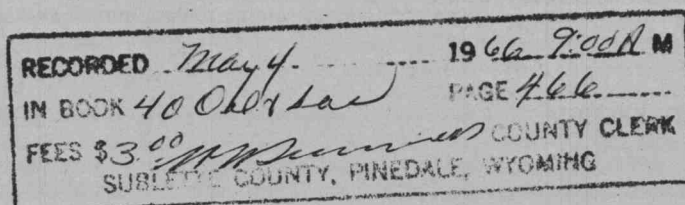 RECORDED May 4. 1966 9:00 A M
IN BOOK 40 O&L PAGE 466
FEES $3.00 COUNTY CLERK
SUBLETTE COUNTY, PINEDALE, WYOMING